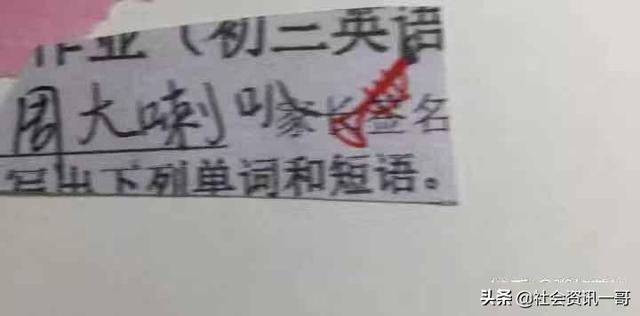 作业（初二英语
周大喇叭家长签名
写出下列单词和短语。
头条 @社会资讯一哥